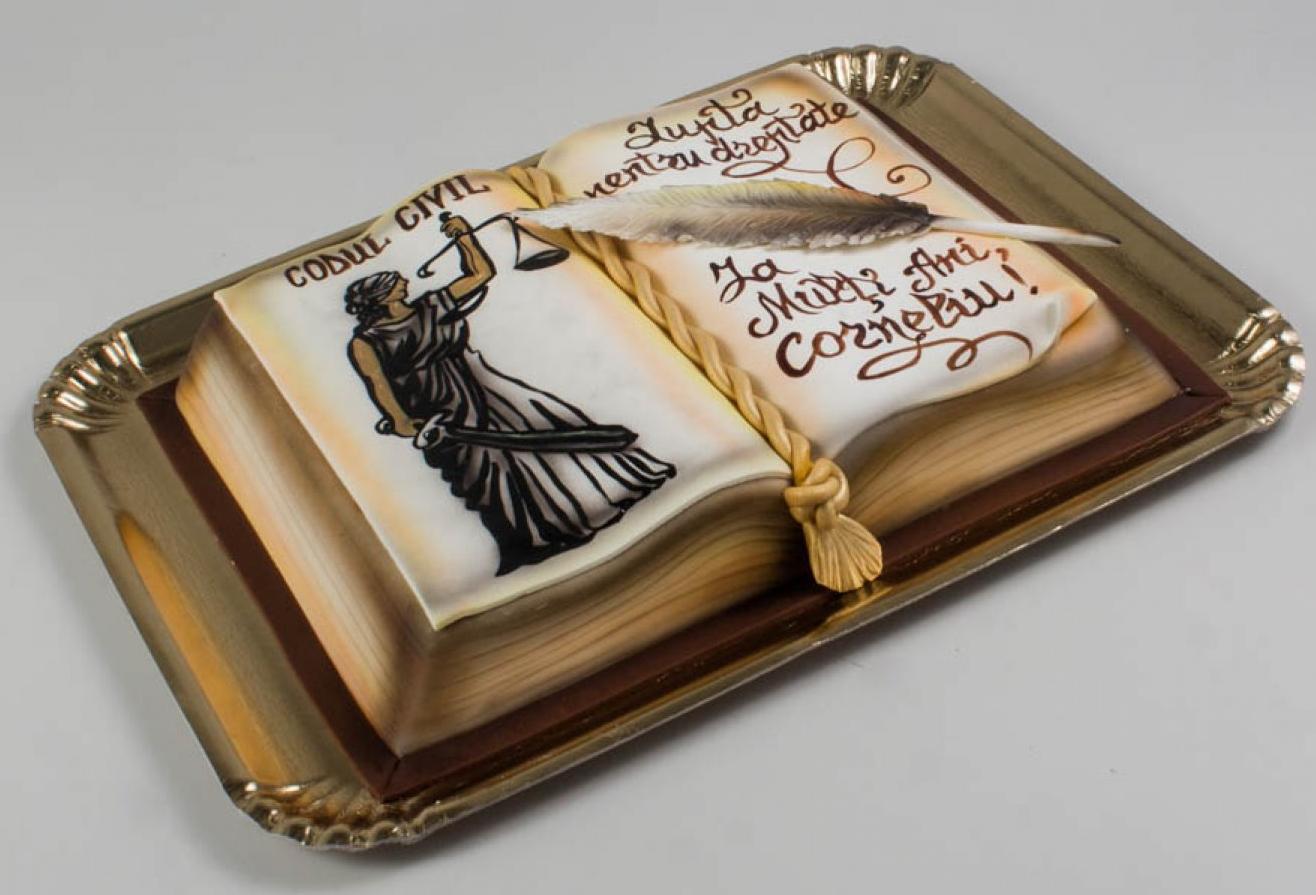 CODUL CIVIL
Lupta
pentru dreptate
La
Mulți Ani,
Corneliu!